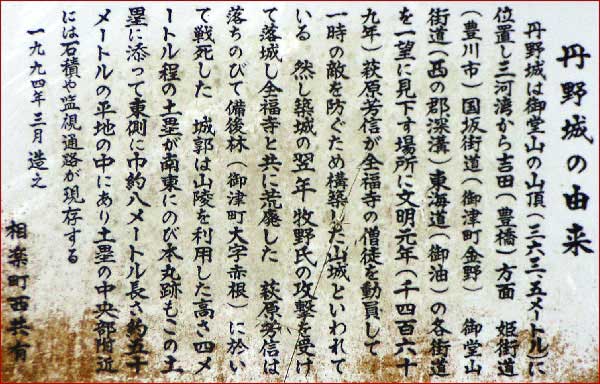 丹野城の由来
丹野城は御堂山の山頂(三六三、五メートル)に
位置し三河湾から吉田(豊橋)方面 姫街道
(豊川市)国坂街道(御津町金野) 御堂山
街道(西の郡深溝)東海道(御油)の各街道
を一望に見下す場所に文明元年(千四百六十
九年)萩原芳信が全福寺の僧徒を動員して
一時の敵を防ぐため構築した山城といわれて
いる 然し築城の翌年 牧野氏の攻撃を受け
て落城し全福寺と共に荒廃した 萩原芳信は
落ちのびて備後林(御津町大字赤根)に於い
て戦死した 城郭は山陵を利用した高さ四メ
ートル程の土塁が南東にのび本丸跡もこの土
塁に添って東側に巾約八メートル長さ約五十
メートルの平地の中にあり土塁の中央部附近
には石積や監視通路が現存する
一九九四年三月造之
相楽町西共有